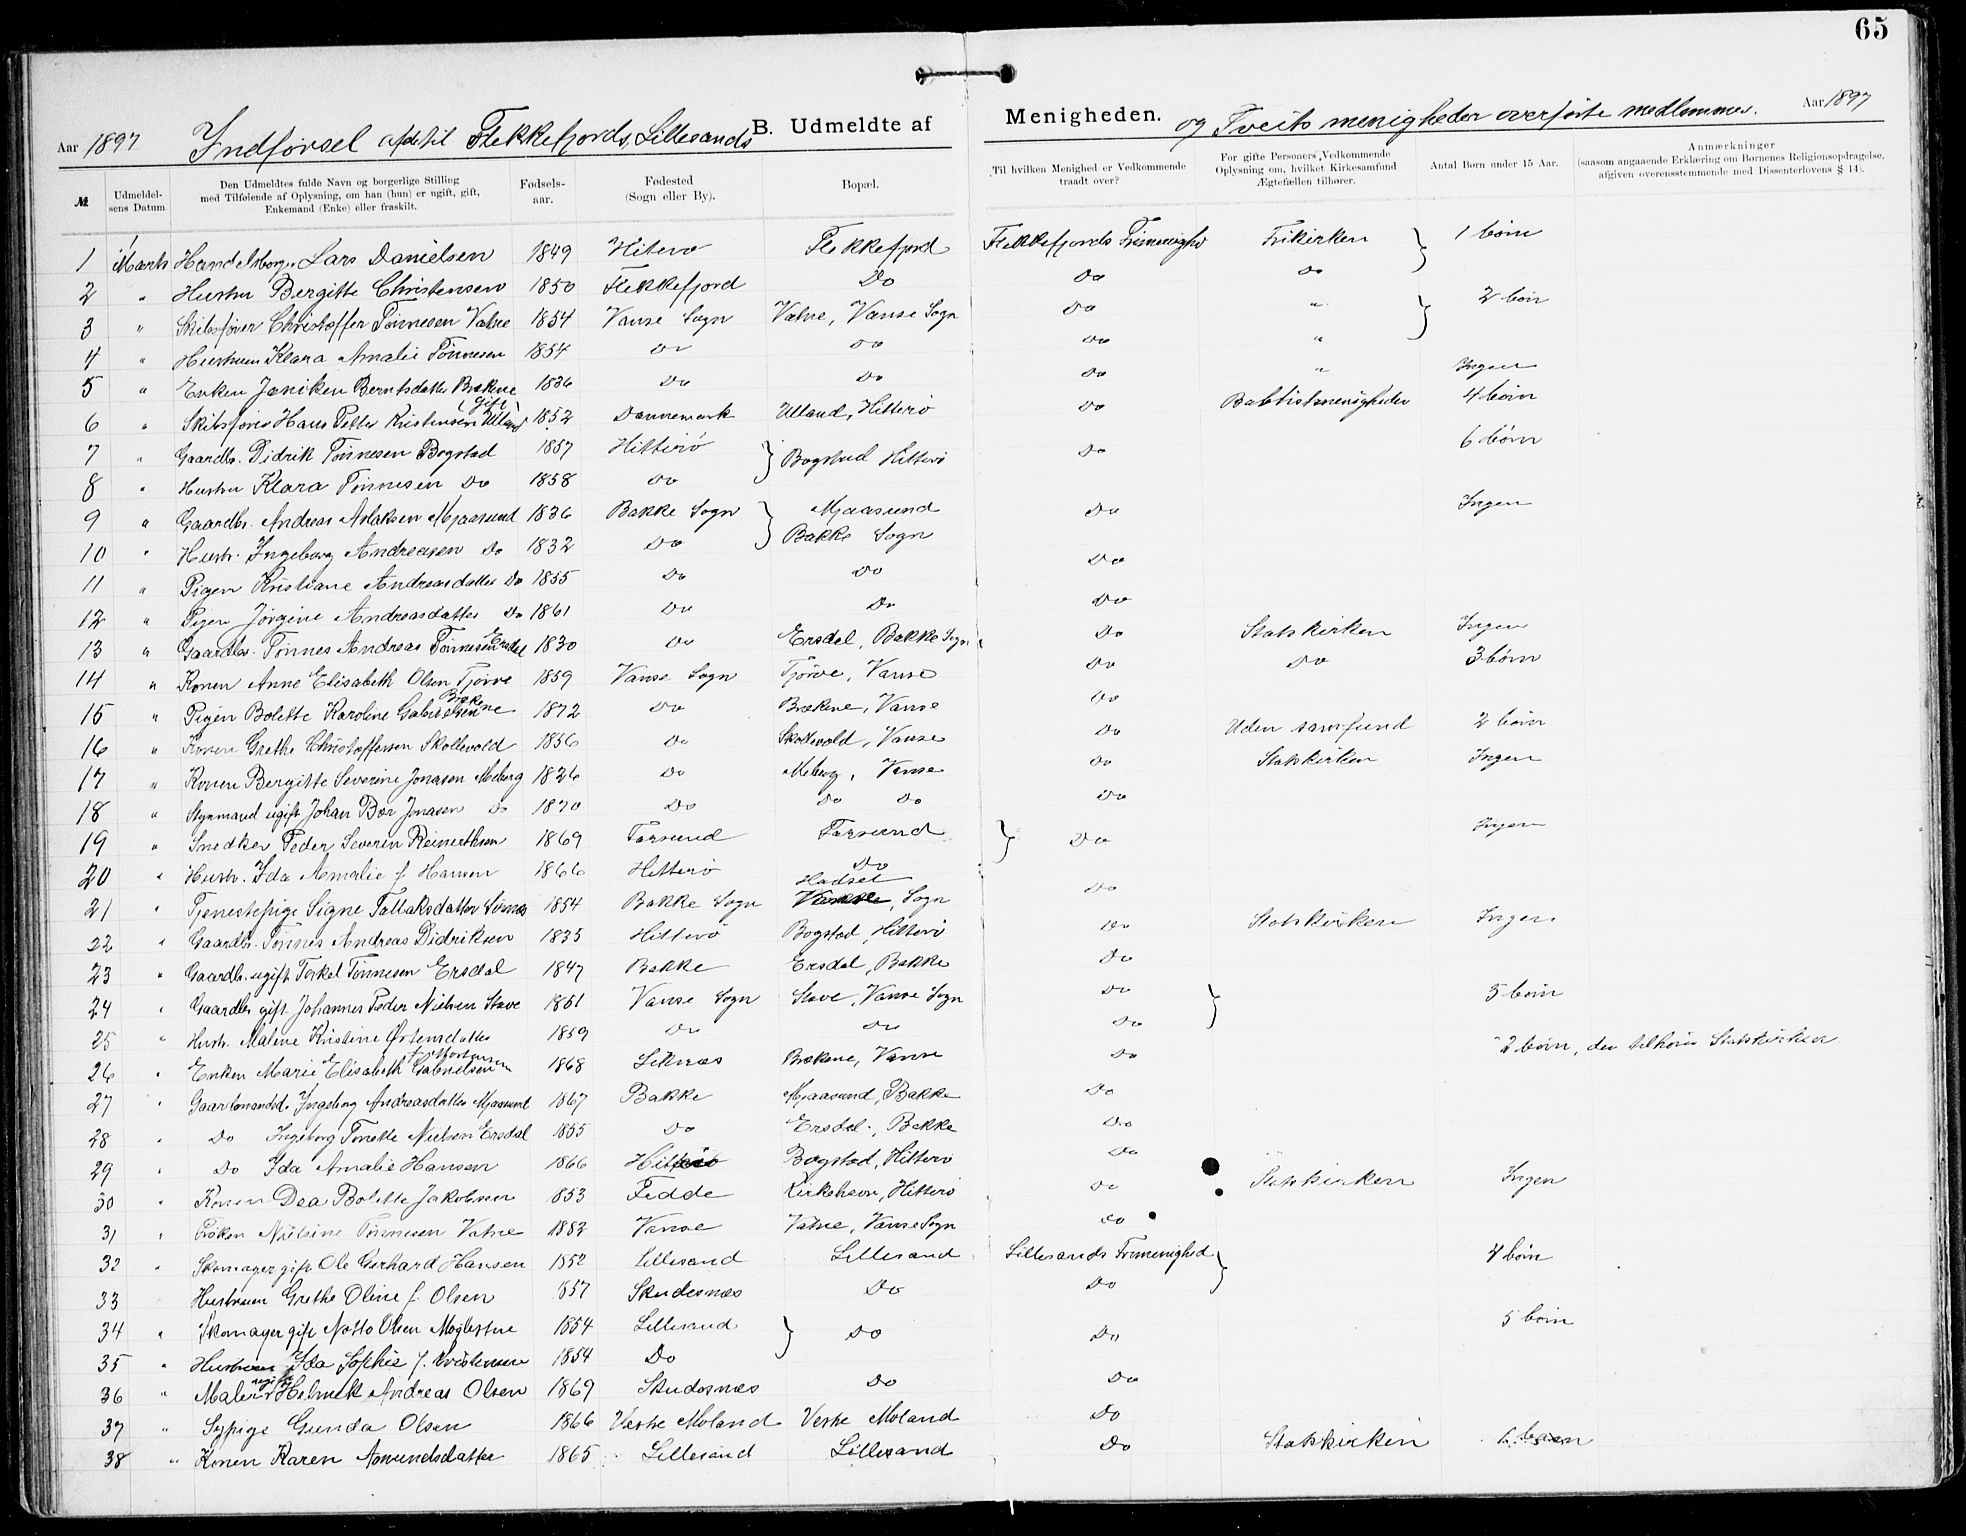 65
Aar 1897 Indførsel af de til Flekkefjords, Lillesands B. Udmeldte af Menigheden. og Tveits menigheder overførte medlemmer. Aar 1897
№ Udmeldelsens Datum Den Udmeldtes fulde Navn og borgerlige Stilling med Tilføiende af Oplysning, om han (hun) er ugift, gift, Enkemand (Enke) eller fraskilt. Fødselsaar. Fødested (Sogn eller By). Bopæl. Til hvilken Menighed er Vedkommende traadt over? For gifte Personers Vedkommende Oplysning om, hvilket Kirkesamfund Ægtefællen tilhører. Antal Børn under 15 Aar. Anmærkninger (saasom angaaende Erklæring om Børnenes Religionsopdragelse, afgiven overensstemmende med Dissenterlovens § 14).
1 1 Marts Handelsborger Lars Danielsen 1849 Hiterø Flekkefjord Flekkefjords Frimenighed Frikirken } 1 børn
2 " Hustru Bergitte Christensen 1850 Flekkefjord Do Do Do
3 " Skibsfører Christoffer Tønnesen Vatne 1854 Vanse Sogn Vatne, Vanse Sogn Do " } 2 børn
4 " Hustruen Klara Amalie Tønnesen 1854 Do Do Do "
5 " Enken Janiken Berntsdatter Brekne 1836 Do Do Do " Ingen
6 " Skibsfører Hans Petter Kristensen Ulland (gift) 1852 Dannemark Ulland, Hitterø Do Babtistmenigheden 4 børn
7 " Gaardbr. Didrik Tønnesen Bogstad 1857 Hitterø } Bogstad Hitterø Do 6 børn
8 " Hustru Klara Tønnesen Do 1858 Do
9 " Gaardbr. Andreas Aslaksen Mjaasund 1836 Bakke Sogn } Mjaasund Do Ingen
10 " Hustr. Ingeborg Andreasen Do 1832 Do Bakke Sogn
11 " Pigen Kristiane Andreasdatter Do 1855 Do Do Do
12 " Pigen Jørgine Andreasdatter Do 1861 Do Do Do
13 " Gaardbr. Tønnes Andreas Tønnesen Ersdal 1830 Do Ersdal, Bakke Sogn Do Statskirken Ingen
14 " Konen Anne Elisabeth Olsen Tjørve 1859 Vanse Sogn Tjørve, Vanse Do Do 3 børn
15 " Pigen Bolette Karoline Gabrielsen Brekne 1872 Do Brekne, Vanse Do
16 " Konen Grethe Christoffersen Skollevold 1856 Do Skollevold, Vanse Do Uden samfund 2 børn
17 " Konen Bergitte Severine Jonasen Meberg 1826 Do Meberg, Vanse Do Statskirken Ingen
18 " Styrmand ugift Johan Bør Jonasen Do 1870 Do Do Do Do
19 " Snedker Peder Severin Reinertsen 1869 Farsund Farsund } Do Ingen
20 " Hustr. Ida Amalie f. Hansen 1866 Hitterø Do
21 " Tjenestepige Signe Tallaksdatter 1854 Bakke Sogn Hadsel Sogn Do
22 " Gaardbr. Tønnes Andreas Didriksen 1835 Hitterø Bogstad, Hitterø Do Statskirken Ingen
23 " Gaardbr. ugift Torkel Tønnesen Ersdal 1847 Bakke Ersdal, Bakke Do
24 " Gaardbr. gift Johannes Peder Nielsen Stave 1851 Vanse Sogn Stave, Vanse Sogn Do } 5 børn
25 " Hustr. Maline Kristine Østensdatter 1859 Do Do Do
26 " Enken Marie Elisabeth Gabrielsen 1868 Brekne, Vanse Do 2 børn, der tilhører Statskirken
27 " Gaardmandsd. Ingeborg Andreasdatter Mjaasund 1867 Bakke Mjaasund, Bakke Do
28 " Do Ingeborg Tonette Nielsen Ersdal 1855 Do Ersdal, Bakke Do
29 " Do Ida Amalie Hansen 1866 Hitterø Bogstad, Hitterø Do
30 " Konen Dea Bolette Jakobsen 1853 Fedde Kirkehavn, Hitterø Do Statskirken Ingen
31 " Frøken Nielsine Tønnesen Vatne 1882 Vanse Vatne, Vanse Sogn Do
32 " Skomager gift Ole Gerhard Hansen 1852 Lillesand Lillesand Lillesands Frimenighed } 4 børn
33 Hustruen Grethe Oline f. Olsen 1857 Skudesnæs Do Do
34 " Skomager gift Notto Olsen Møglestue 1854 Lillesand } Do Do 5 børn
35 " Hustruen Ida Sophie f. Kristensen 1854 Do
36 " Maler ugift Helmik Andreas Olsen 1869 Skudesnæs Do Do
37 " Sypige Gunda Olsen 1866 Vestre Moland Vestre Moland Do
38 " Konen Karen Amundsdatter 1865 Lillesand Lillesand Do Statskirken 1 barn